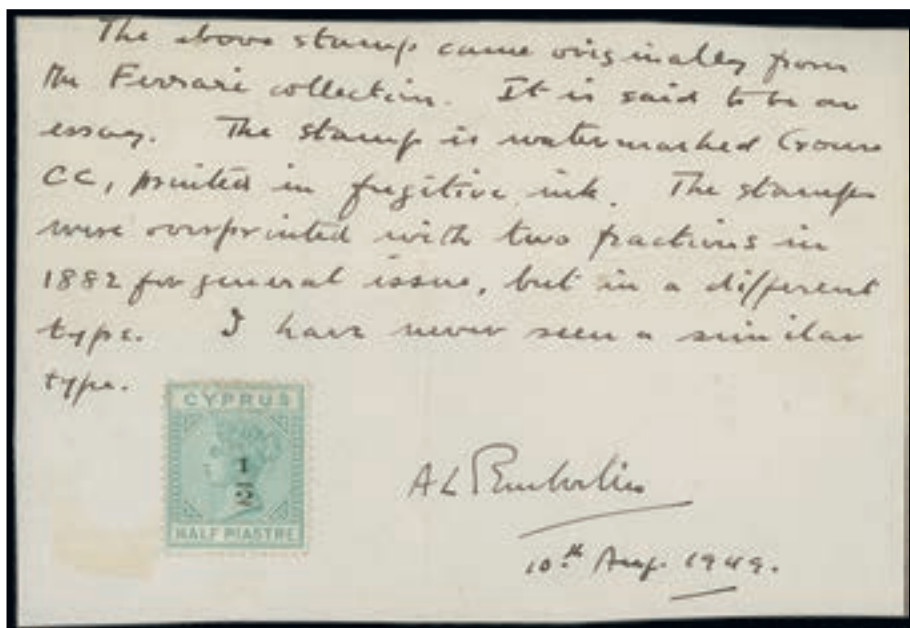 The above stamp came originally from
the Ferrari collection. It is said to be an
essay. The stamp is watermarked Crown
CC, printed in fugitive ink. The stamps
were overprinted with two fractions in
1882 for general issue, but in a different
type. I have never seen a similar
type.
CYPRUS
1
2
HALF PIASTRE
A L
10th Aug. 1949.